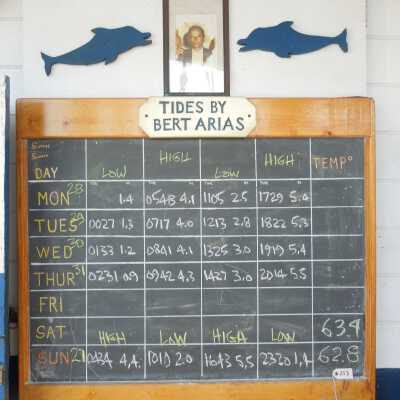 TIDES BY
BERT ARIAS
DAY LOW HIGH LOW HIGH TEMP°
MON 28 1.4 0543 4.1 1105 2.5 1729 5.0
TUES 29 0027 1.3 0717 4.0 1213 2.8 1822 5.3
WED 30 0133 1.2 0841 4.1 1325 3.0 1919 5.4
THUR 31 0231 0.9 0942 4.3 1427 3.0 2014 5.5
FRI
SAT HIGH LOW HIGH LOW 63.4
SUN 27 0434 4.4 1010 2.0 1643 5.5 2320 1.4 62.8